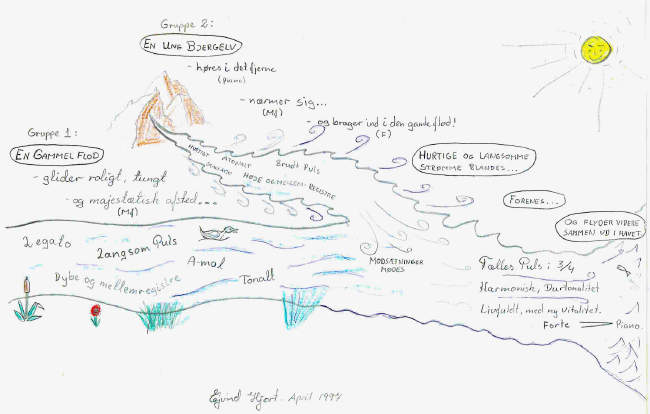 Gruppe 2:
EN UNG BJERGELV
- høres i det fjerne
(piano)
- nærmer sig...
(Mf)
- og brager ind i den gamle flod!
(F)
Gruppe 1:
EN GAMMEL FLOD
- glider roligt, tungt
- og majestætisk afsted...
(Mf)
HURTIGT
ATONALT
Brudt Puls
HØJE OG MELLEM-REGISTRE
HURTIGE OG LANGSOMME
STRØMME BLANDES...
FORENES...
OG FLYDER VIDERE
SAMMEN UD I HAVET
Legato
Langsom Puls
A-mol
Dybe og mellemregistre
Tonalt
MODSÆTNINGER
MØDES
Fælles Puls i 3/4
Harmonisk, Durtonalitet
Livfuldt, med ny vitalitet.
Forte
Piano
Ejvind Hjort. April 1997